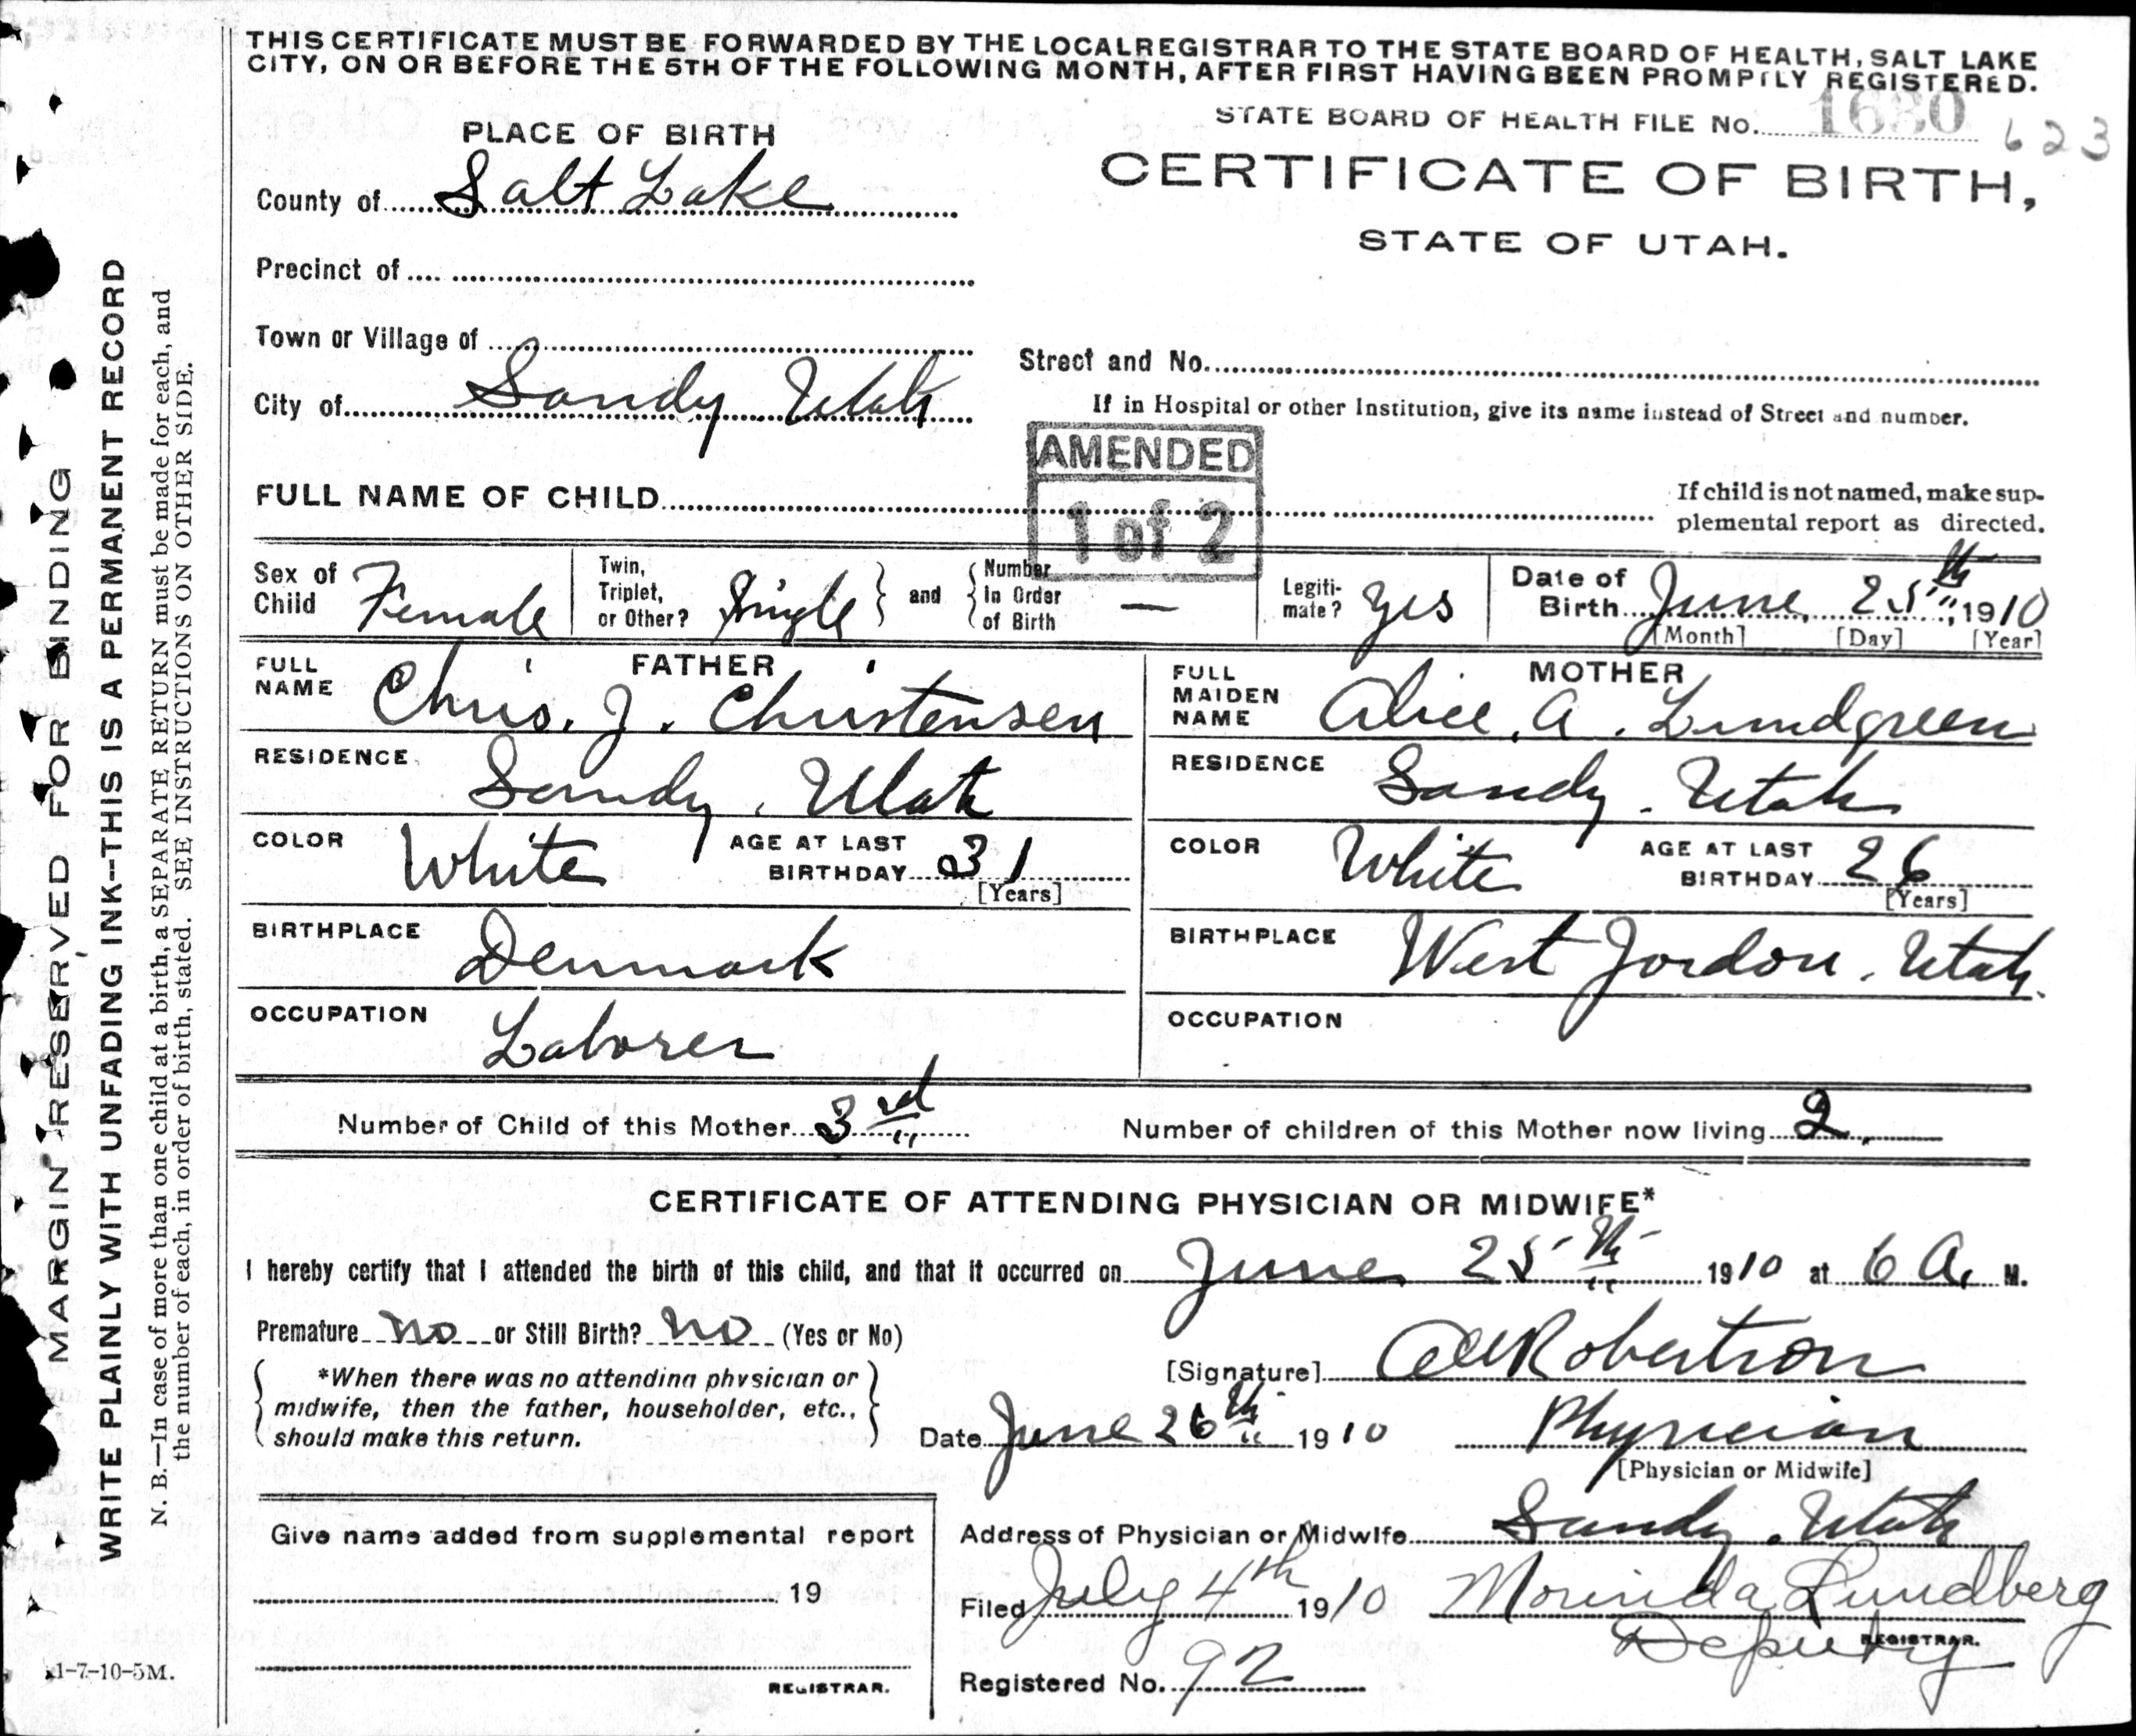 THIS CERTIFICATE MUST BE FORWARDED BY THE LOCAL REGISTRAR TO THE STATE BOARD OF HEALTH, SALT LAKE
CITY, ON OR BEFORE THE 5TH OF THE FOLLOWING MONTH, AFTER FIRST HAVING BEEN PROMPTLY REGISTERED.
STATE BOARD OF HEALTH FILE No. 1680 623
PLACE OF BIRTH
CERTIFICATE OF BIRTH,
STATE OF UTAH.
County of Salt Lake
Precinct of
Town or Village of
Street and No.
City of Sandy Utah
If in Hospital or other Institution, give its name instead of Street and number.
AMENDED
1 of 2
FULL NAME OF CHILD
If child is not named, make sup-
plemental report as directed.
Sex of Child Female
Twin, Triplet, or Other? Single and Number In Order of Birth —
Legiti-mate? Yes
Date of Birth June 25th 1910
[Month] [Day] [Year]
FATHER
FULL NAME Chris. J. Christensen
RESIDENCE Sandy, Utah
COLOR White AGE AT LAST BIRTHDAY 31
[Years]
BIRTHPLACE Denmark
OCCUPATION Laborer
MOTHER
FULL MAIDEN NAME Alice. A. Lundgreen
RESIDENCE Sandy. Utah
COLOR White AGE AT LAST BIRTHDAY 26
[Years]
BIRTHPLACE West Jordon. Utah.
OCCUPATION
Number of Child of this Mother 3rd
Number of children of this Mother now living 2.
CERTIFICATE OF ATTENDING PHYSICIAN OR MIDWIFE*
I hereby certify that I attended the birth of this child, and that it occurred on June 25th 1910 at 6 A. M.
Premature no or Still Birth? no (Yes or No)
*When there was no attending physician or
midwife, then the father, householder, etc.,
should make this return.
[Signature] Robertson
Date June 26th 1910
Physician
[Physician or Midwife]
Address of Physician or Midwife Sandy. Utah
Filed July 4th 1910 Morinda Lundberg
Deputy REGISTRAR.
Registered No. 92
Give name added from supplemental report
19
REGISTRAR.
1-7-10-5M.
MARGIN RESERVED FOR BINDING
WRITE PLAINLY WITH UNFADING INK--THIS IS A PERMANENT RECORD
N. B.—In case of more than one child at a birth, a SEPARATE RETURN must be made for each, and
the number of each, in order of birth, stated. SEE INSTRUCTIONS ON OTHER SIDE.